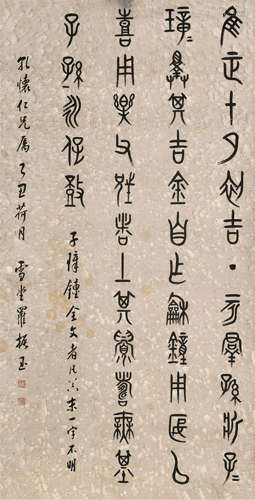 隹正十月初吉丁亥羣孫斨子
璋擇其吉金自乍龢鐘用匽以
喜用樂父兄者士其眉壽無基
子孫永保鼓
子璋鐘全文者凡六末一字不明
孔懷仁兄屬 乙丑荷月 雪堂羅振玉